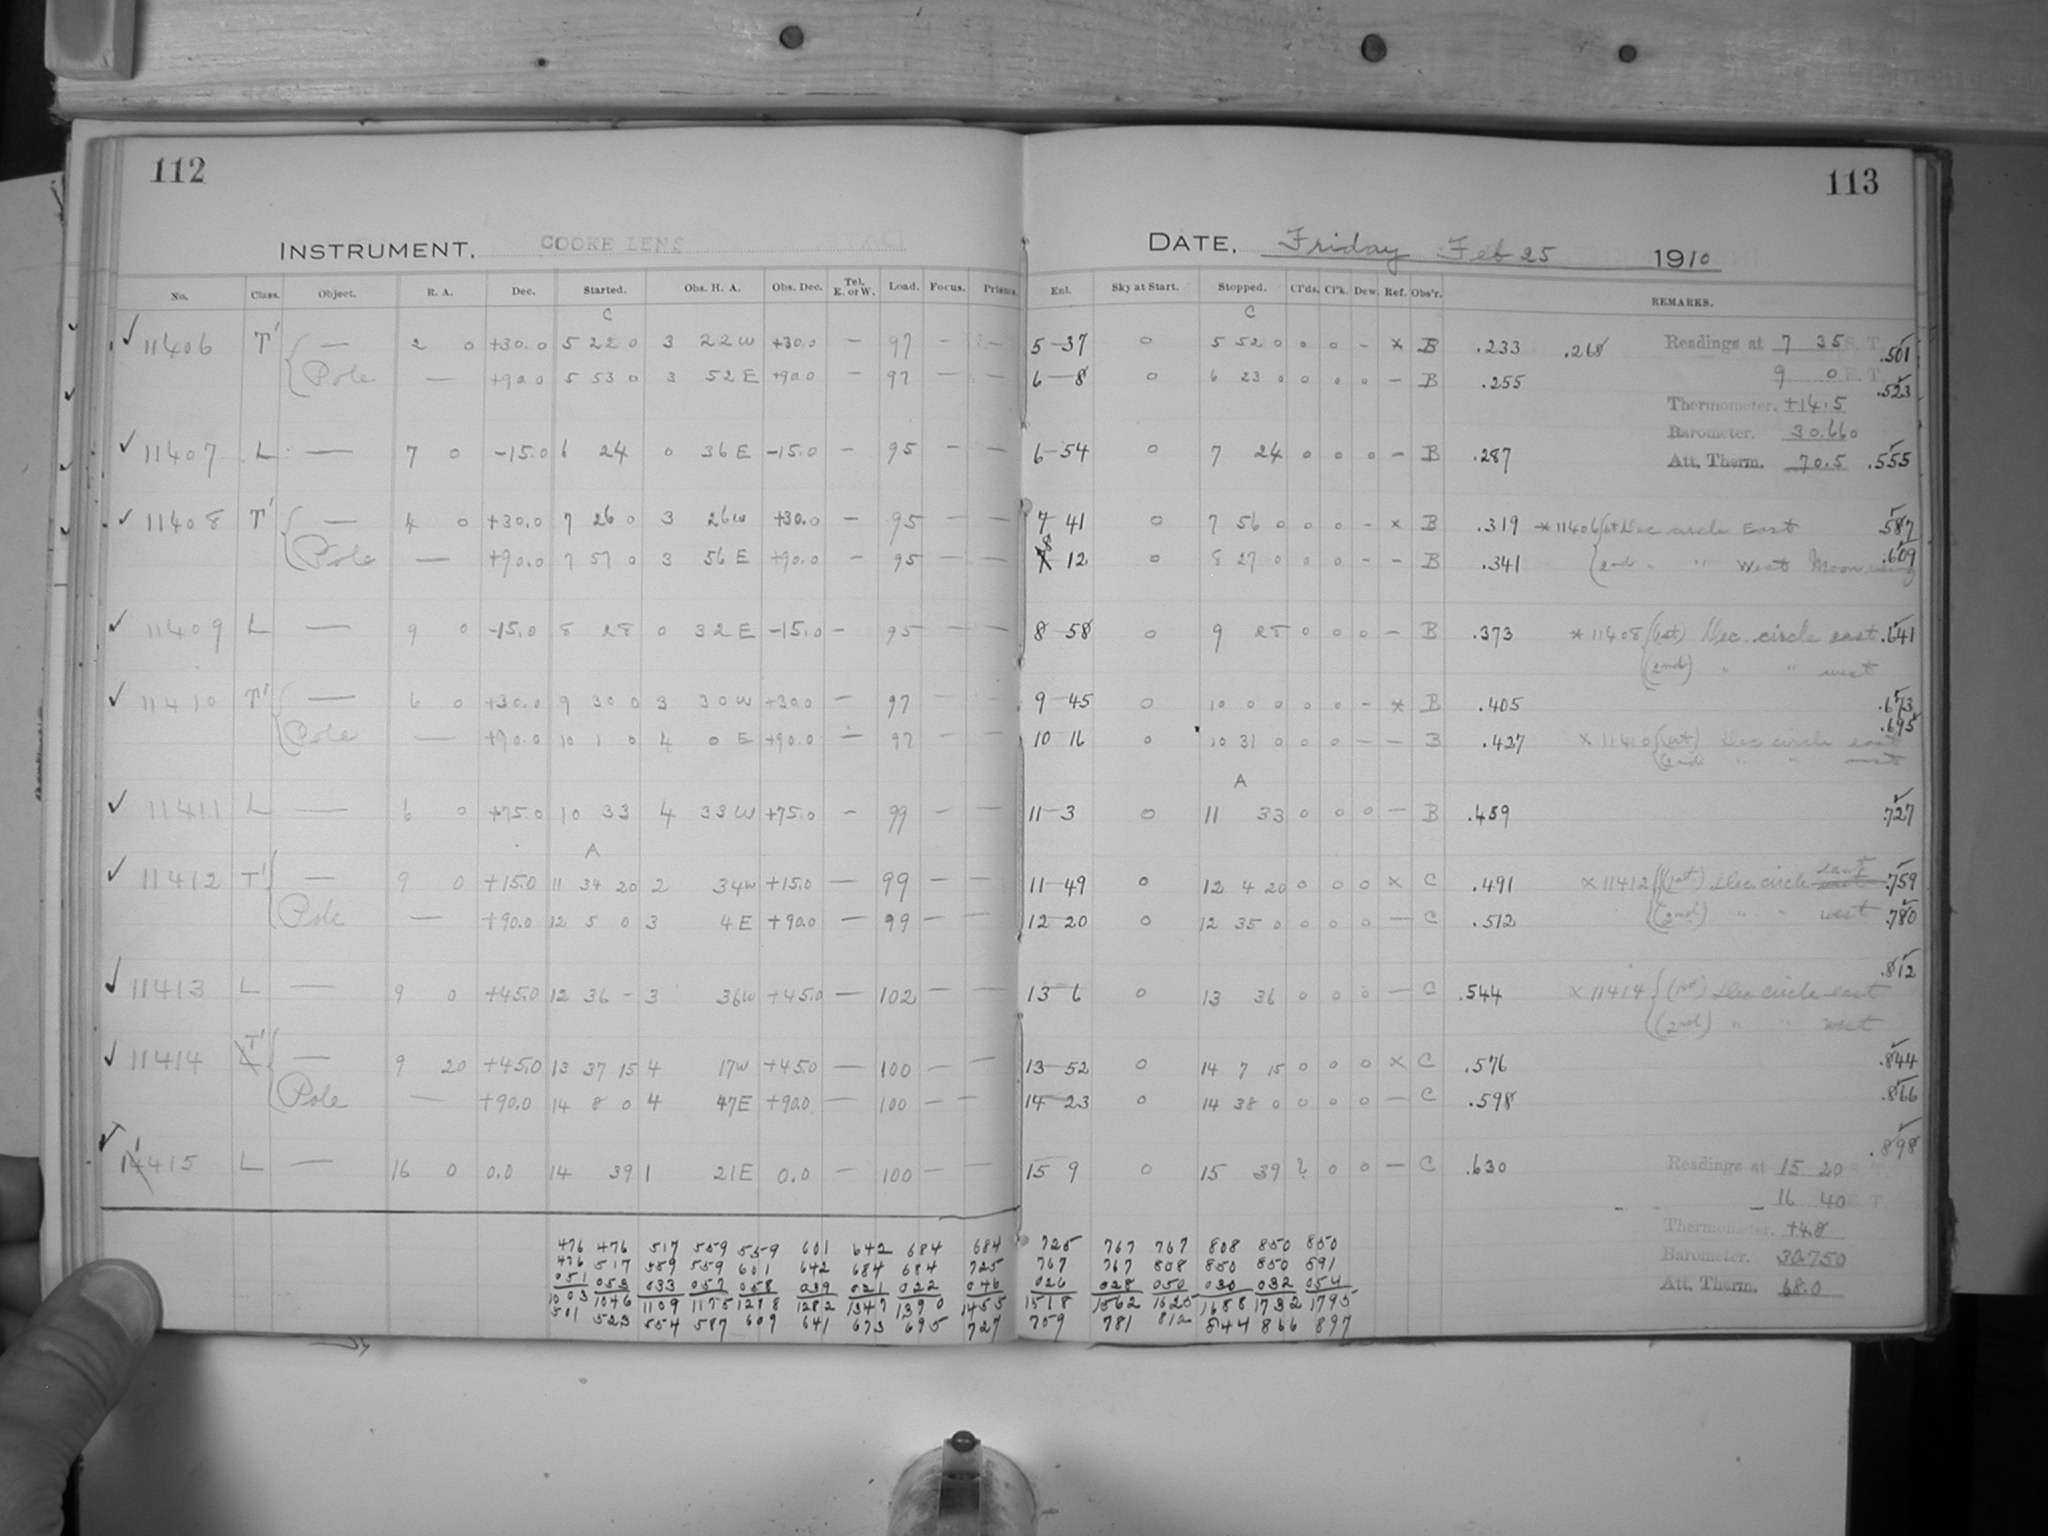 112
INSTRUMENT. COOKE LENS
No. Class. Object. R. A. Dec. Started. Obs. H. A. Obs. Dec. Tel. E. or W. Load. Focus. Prisms.
C
11406 T' — 2 0 +30.0 5 22 0 3 22 W +30.0 — 97 — —
Pole — +90.0 5 53 0 3 52 E +90.0 — 97 — —
11407 L — 7 0 -15.0 6 24 0 36 E -15.0 — 95 — —
11408 T' — 4 0 +30.0 7 26 0 3 26 W +30.0 — 95 — —
Pole — +90.0 7 57 0 3 56 E +90.0 — 95 — —
11409 L — 9 0 -15.0 8 28 0 32 E -15.0 — 95 — —
11410 T' — 6 0 +30.0 9 30 0 3 30 W +30.0 — 97 — —
Pole — +90.0 10 1 0 4 0 E +90.0 — 97 — —
11411 L — 6 0 +75.0 10 33 4 33 W +75.0 — 99 — —
A
11412 T' — 9 0 +15.0 11 34 20 2 34 W +15.0 — 99 — —
Pole — +90.0 12 5 0 3 4 E +90.0 — 99 — —
11413 L — 9 0 +45.0 12 36 - 3 36 W +45.0 — 102 — —
11414 T' — 9 20 +45.0 13 37 15 4 17 W +45.0 — 100 — —
Pole — +90.0 14 8 0 4 47 E +90.0 — 100 — —
11415 L — 16 0 0.0 14 39 1 21 E 0.0 — 100 — —
476 476 517 559 559 601 642 684 684
476 517 559 559 601 642 684 684 725
051 053 033 057 058 039 021 022 046
1003 1046 1109 1175 1218 1282 1347 1390 1455
501 523 554 587 609 641 673 695 727
113
DATE. Friday Feb 25 1910
Enl. Sky at Start. Stopped. Cl'ds. Cl'k. Dew. Ref. Obs'r. REMARKS.
C
5-37 0 5 52 0 0 0 - * B .233 .268 Readings at 7 35 S. T. .501
9 0 E. T.
6-8 0 6 23 0 0 0 0 - B .255 .523
Thermometer. +14.5
Barometer. 30.660
6-54 0 7 24 0 0 0 - B .287 Att. Therm. 70.5 .555
7 41 0 7 56 0 0 0 - * B .319 *11406 (1st Dec circle East .587
8 12 0 8 27 0 0 0 - - B .341 (2nd " " West Moon rising .609
8-58 0 9 28 0 0 0 - B .373 *11408 (1st) Dec. circle east .641
(2nd) " " west
9-45 0 10 0 0 0 0 - * B .405 .673
.695
10 16 0 10 31 0 0 0 - - B .427 x 11410 (1st) Dec circle east
(2nd " " west
A
11-3 0 11 33 0 0 0 - B .459 .727
east
11-49 0 12 4 20 0 0 0 x C .491 x 11412 (1st) Dec circle .759
12-20 0 12 35 0 0 0 0 - C .512 (2nd) " " west .780
.812
13-6 0 13 36 0 0 0 - C .544 x 11414 (1st) Dec circle east
(2nd) " " west
13-52 0 14 7 15 0 0 0 x C .576 .844
14-23 0 14 38 0 0 0 0 - C .598 .866
.898
15 9 0 15 39 ? 0 0 - C .630 Readings at 15 20 S. T.
16 40 E. T.
Thermometer. +4.8
Barometer. 30.750
Att. Therm. 68.0
725 767 767 808 850 850
767 767 808 850 850 891
026 028 050 030 032 054
1518 1562 1625 1688 1732 1795
759 781 812 844 866 897